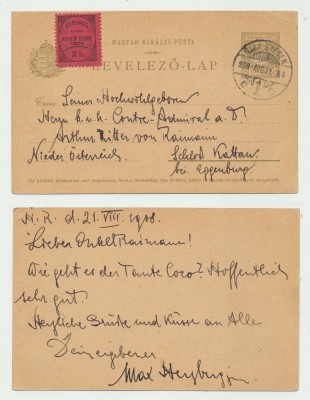 MAGYAR KIRÁLYI POSTA
LEVELEZŐ-LAP
Seiner Hochwohlgeboren
Herrn k.u.k. Contre-Admiral a.D.
Arthur Ritter von Raimann
Nieder Österreich. Schloß Kattau
bei Eggenburg
H.R. d. 21. VIII 1908.
Lieber Onkel Raimann!
Wie geht es der Tante Coco? Hoffentlich
sehr gut!
Herzliche Grüße und Küsse an Alle
Dein ergebener
Max Herzberg